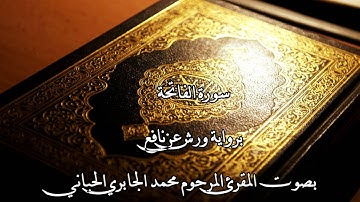 سورة الفاتحة
برواية ورش عن نافع
بصوت المقرئ المرحوم محمد الجابري الحياني